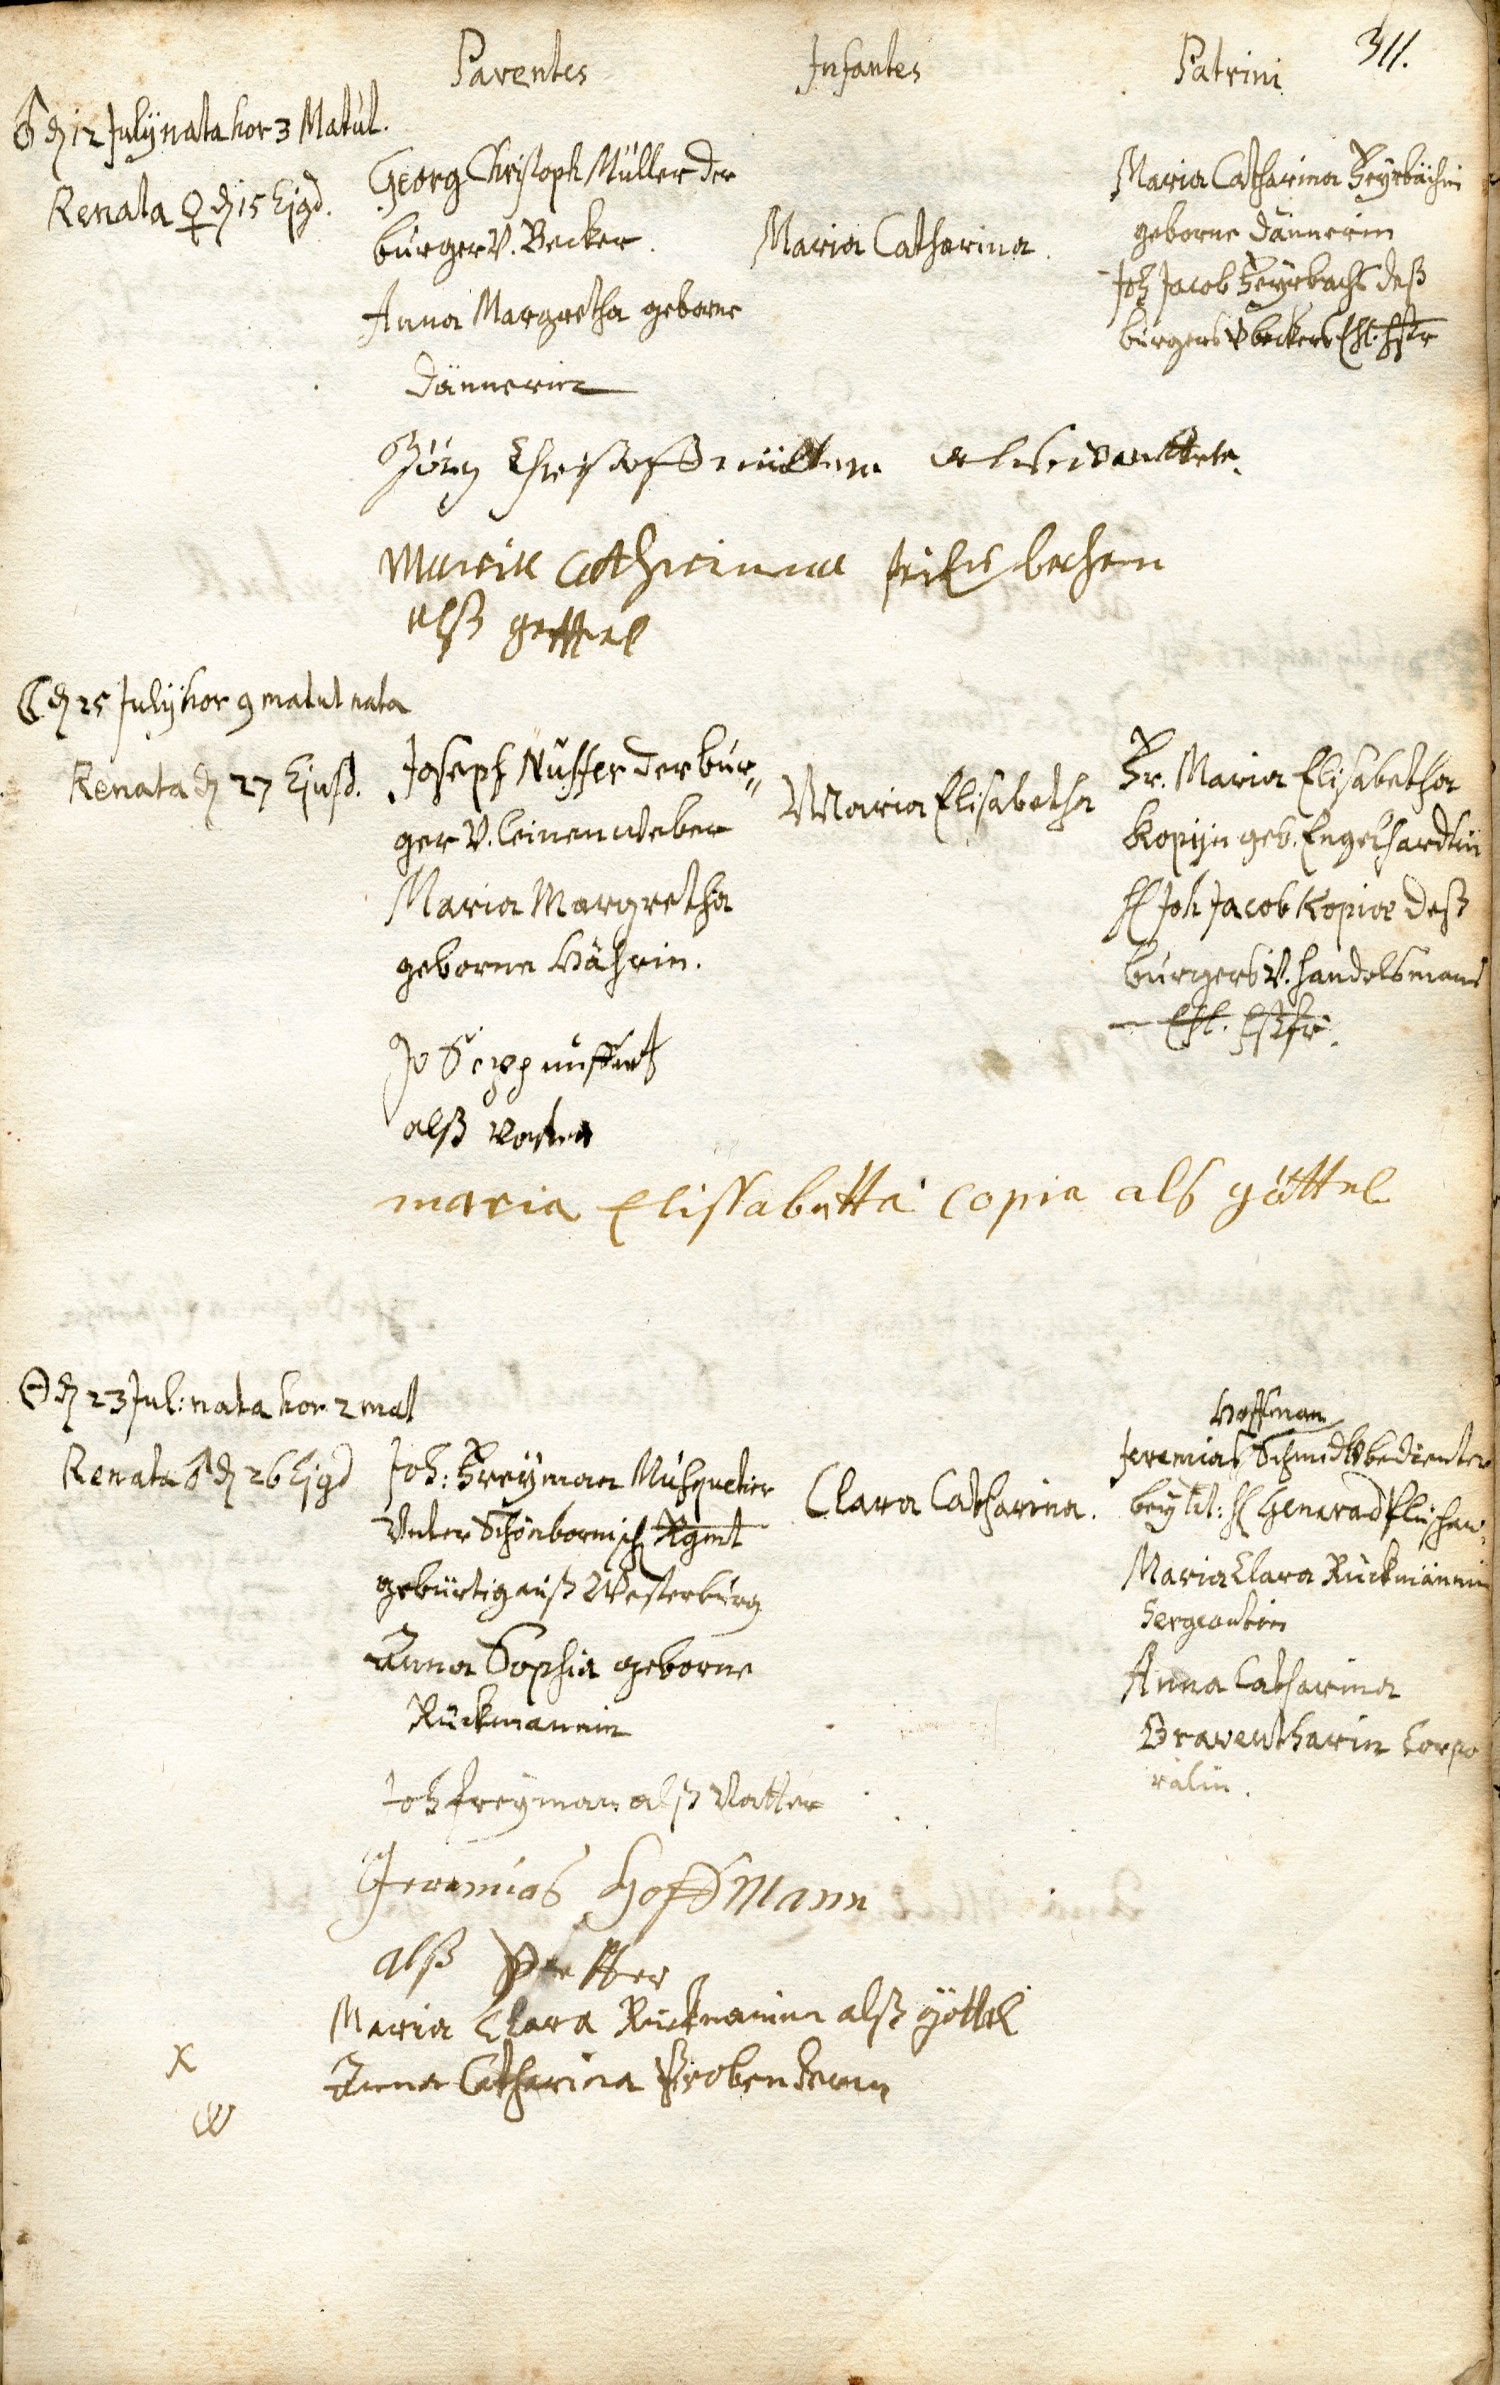 Parentes Infantes Patrini 311.
♂ d 12 July nata hor 3 Matut.
Renata ♀ d 15 Ejgd.
Georg Christoph Müller der
burger v. Becker.
Anna Margretha geborne
Dännerin
Maria Catharina.
Maria Catharina
geborne Dännerin
Joh Jacob Feyrbachs deß
burgers v beckers Ehl. hßfr
Jörg Christoff müller als vatter
Maria
alß gettel
☾ d 25 July hor 9 matut nata
Renata d 27 Ejusd.
Joseph Nuffer der bur„
ger v. leinenweber
Maria Margretha
geborne
Maria Elisabetha
Fr. Maria Elisabetha
Kopijn geb. Engelhardtin
H Joh Jacob Kopiae deß
burgers v. handelsmans
Ehl. hßfr.
Jo Sepp nuffer
alß vatter
maria Elissabetta copia als göttel
d 23 Jul: nata hor 2 mat
Renata ♂ d 26 Ejgd
Joh: Freyman Musquetier
Unter Schönbornisch Rgmt
gebürtig auß Westerburg
Anna Sophia geborne
Rückmannin
Clara Catharina.
Hoffman
Jeremias Schmidt bedienter
bey tit: H General
Maria Clara Rückmännin
Sergeantin
Anna Catharina
Corpo
ralin.
Joh freyman alß Vatter
Jeremias Hoffmann
alß Petter
Maria Clara Rückmanin alß göttel
Anna Catharina
X